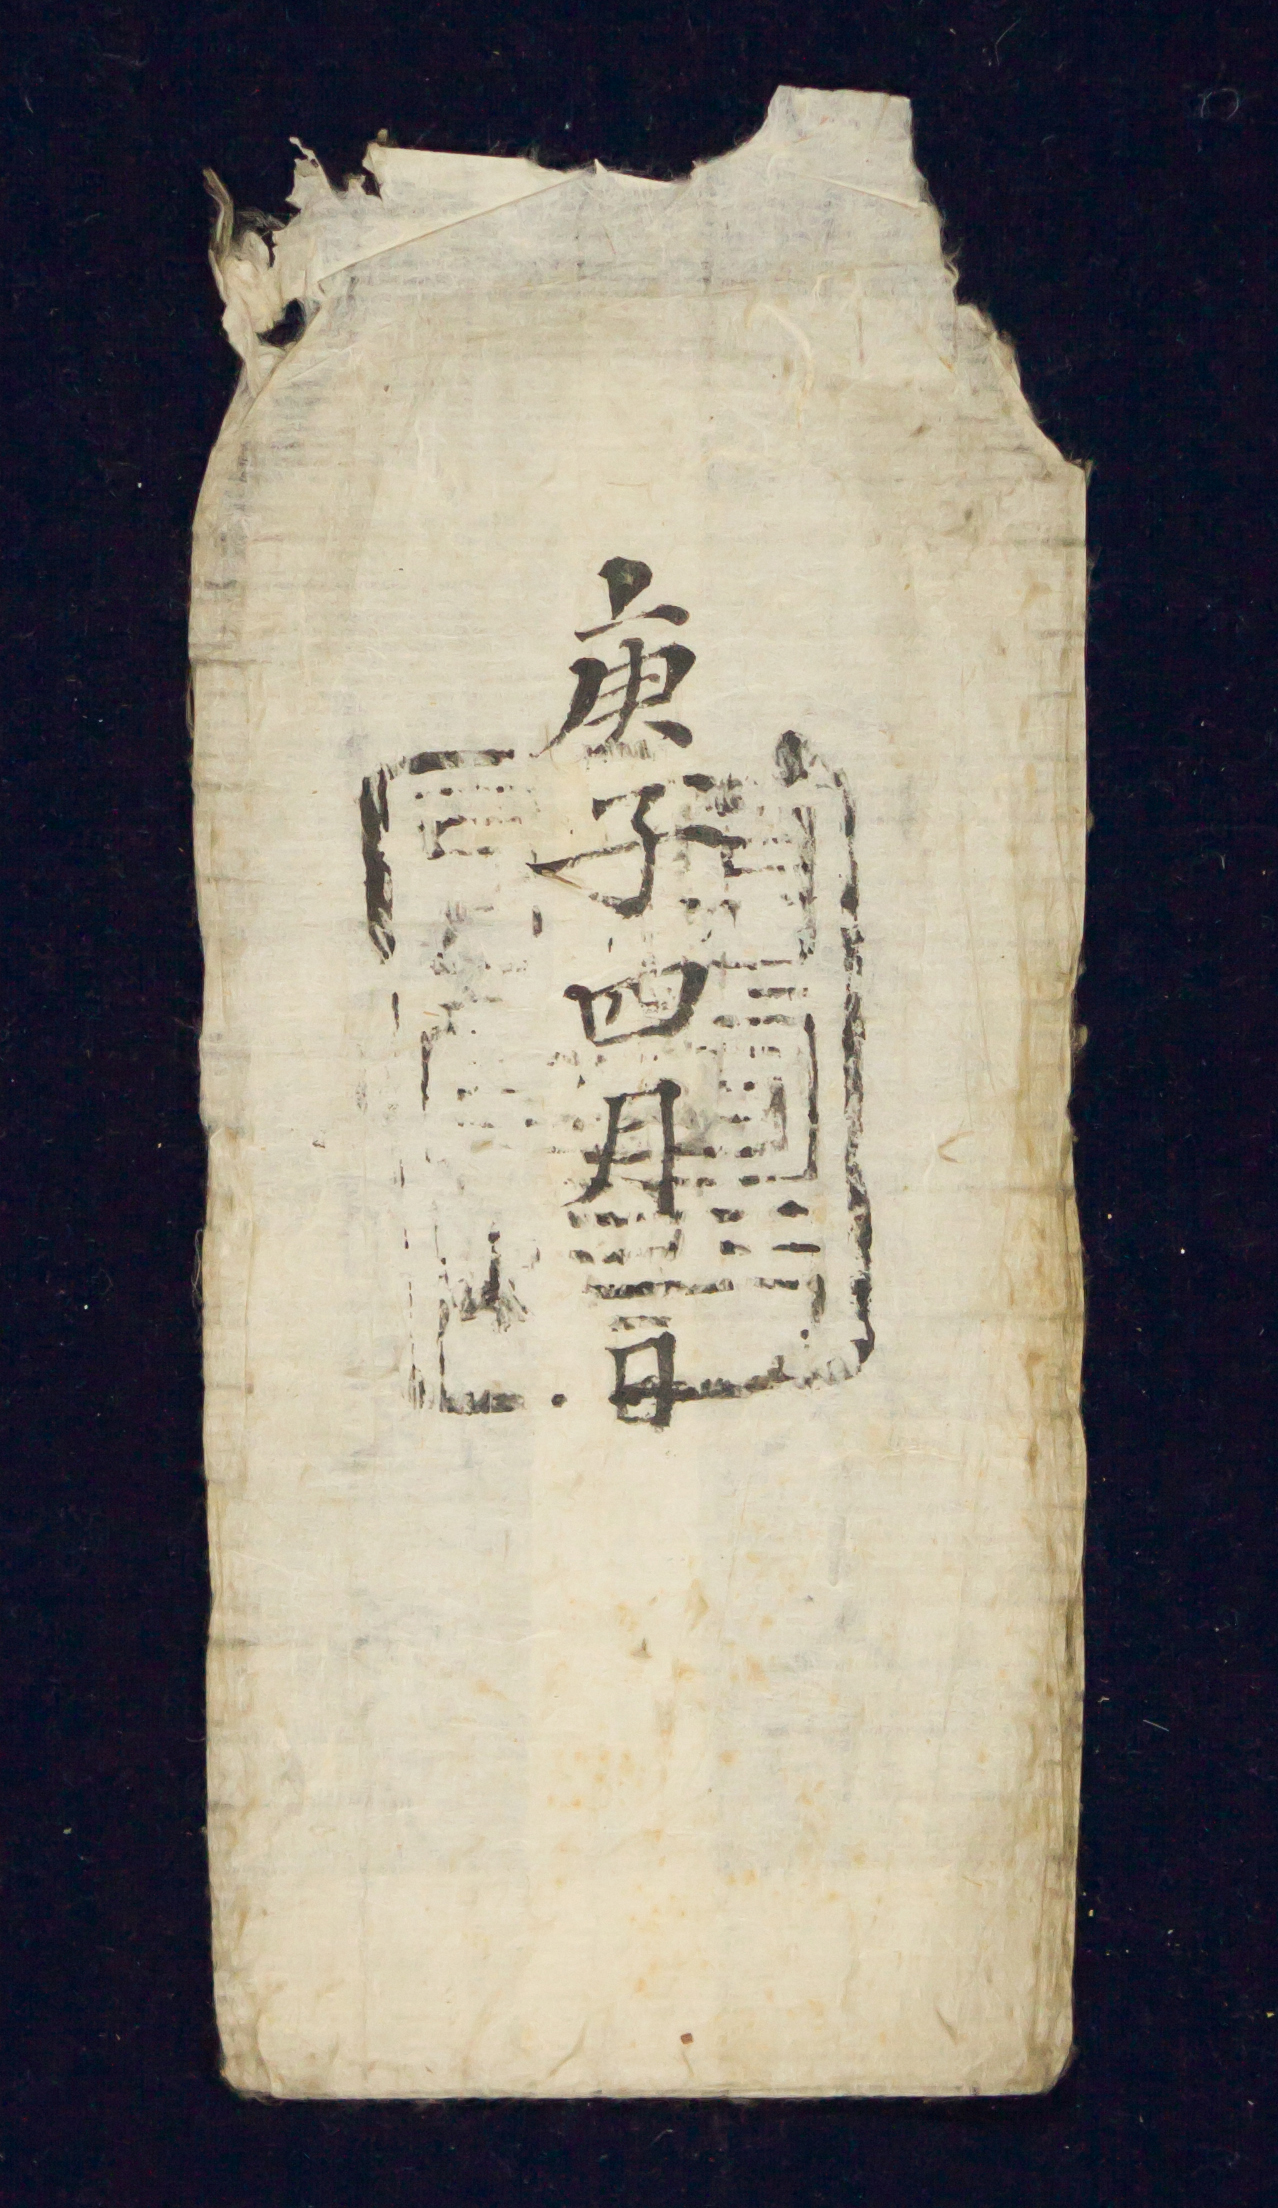 庚子四月日